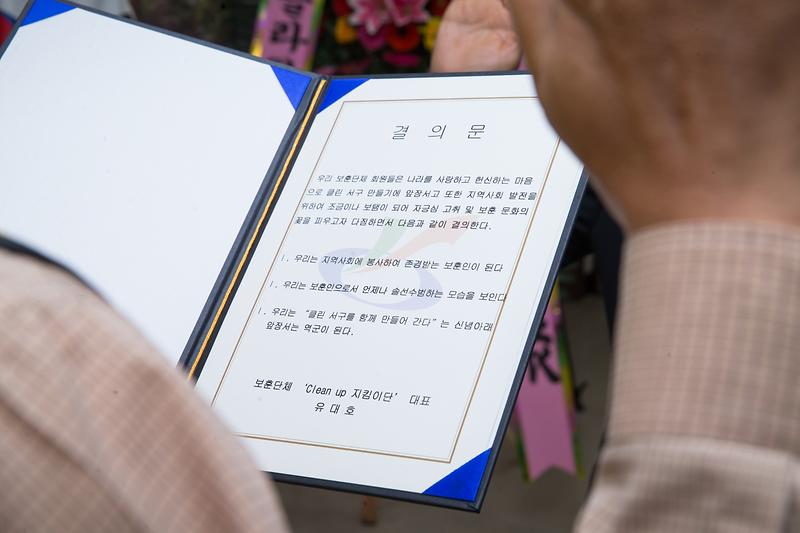 클라
결 의 문
우리 보훈단체 회원들은 나라를 사랑하고 헌신하는 마음
으로 클린 서구 만들기에 앞장서고 또한 지역사회 발전을
위하여 조금이나 보탬이 되어 자긍심 고취 및 보훈 문화의
꽃을 피우고자 다짐하면서 다음과 같이 결의한다.
1. 우리는 지역사회에 봉사하여 존경받는 보훈인이 된다
1. 우리는 보훈인으로서 언제나 솔선수범하는 모습을 보인다
1. 우리는 “클린 서구를 함께 만들어 간다”는 신념아래
앞장서는 역군이 된다.
보훈단체 ‘Clean up 지킴이단’ 대표
유 대 호